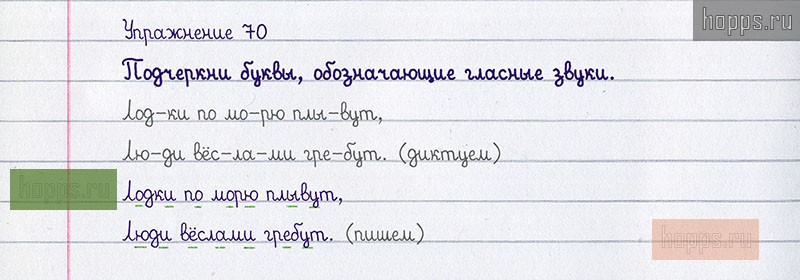 hopps.ru
Упражнение 70
Подчеркни буквы, обозначающие гласные звуки.
Лод-ки по мо-рю плы-вут,
Лю-ди вёс-ла-ми гре-бут. (диктуем)
hopps.ru
Лодки по морю плывут,
Люди вёслами гребут. (пишем)
hopps.ru